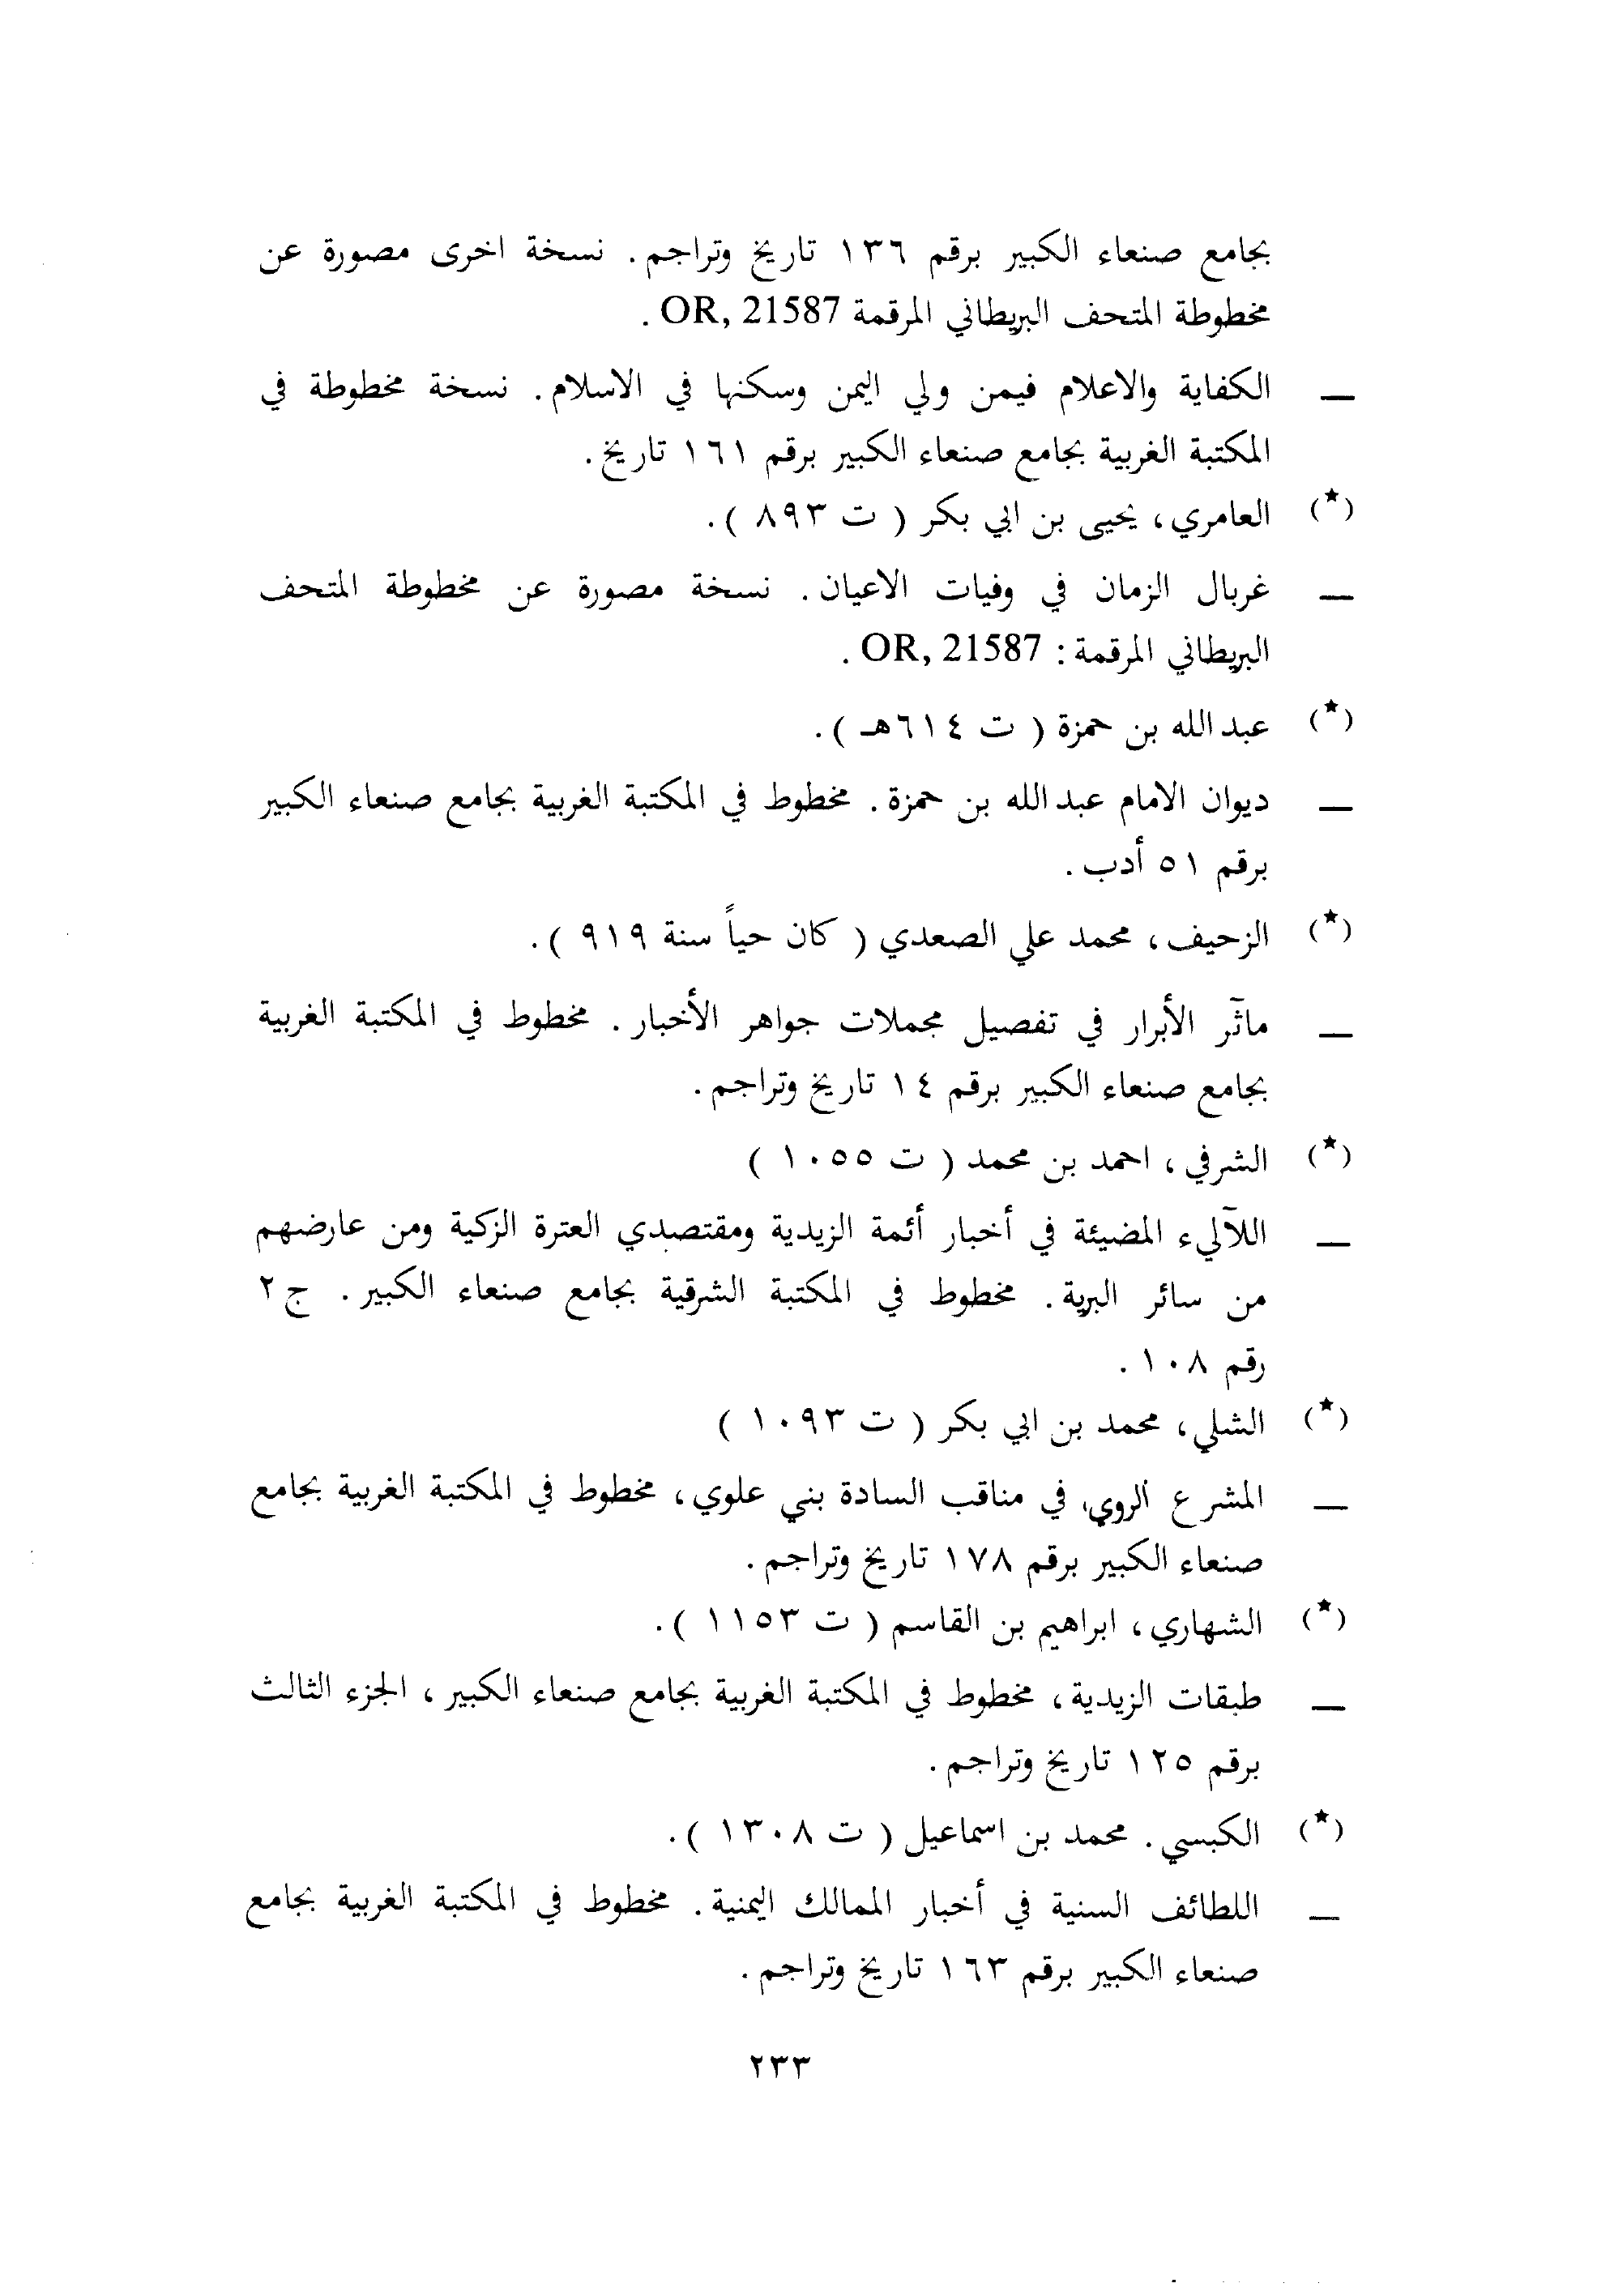 بجامع صنعاء الكبير برقم ١٣٦ تاريخ وتراجم. نسخة اخرى مصورة عن
مخطوطة المتحف البريطاني المرقمة OR, 21587 .
— الكفاية والاعلام فيمن ولي اليمن وسكنها في الاسلام. نسخة مخطوطة في
المكتبة الغربية بجامع صنعاء الكبير برقم ١٦١ تاريخ.
(★) العامري، يحيى بن ابي بكر ( ت ٨٩٣ ).
— غربال الزمان في وفيات الاعيان. نسخة مصورة عن مخطوطة المتحف
البريطاني المرقمة: OR, 21587 .
(★) عبد الله بن حمزة ( ت ٦١٤هـ ).
— ديوان الامام عبد الله بن حمزة. مخطوط في المكتبة الغربية بجامع صنعاء الكبير
برقم ٥١ أدب.
(★) الزحيف، محمد علي الصعدي ( كان حياً سنة ٩١٩ ).
— مآثر الأبرار في تفصيل مجملات جواهر الأخبار. مخطوط في المكتبة الغربية
بجامع صنعاء الكبير برقم ١٤ تاريخ وتراجم.
(★) الشرفي، احمد بن محمد ( ت ١٠٥٥ )
— اللآليء المضيئة في أخبار أئمة الزيدية ومقتصدي العترة الزكية ومن عارضهم
من سائر البرية. مخطوط في المكتبة الشرقية بجامع صنعاء الكبير. ج ٢
رقم ١٠٨ .
(★) الشلي، محمد بن ابي بكر ( ت ١٠٩٣ )
— المشرع الروي في مناقب السادة بني علوي، مخطوط في المكتبة الغربية بجامع
صنعاء الكبير برقم ١٧٨ تاريخ وتراجم.
(★) الشهاري، ابراهيم بن القاسم ( ت ١١٥٣ ).
— طبقات الزيدية، مخطوط في المكتبة الغربية بجامع صنعاء الكبير، الجزء الثالث
برقم ١٢٥ تاريخ وتراجم.
(★) الكبسي. محمد بن اسماعيل ( ت ١٣٠٨ ).
— اللطائف السنية في أخبار الممالك اليمنية. مخطوط في المكتبة الغربية بجامع
صنعاء الكبير برقم ١٦٣ تاريخ وتراجم.
٢٣٣